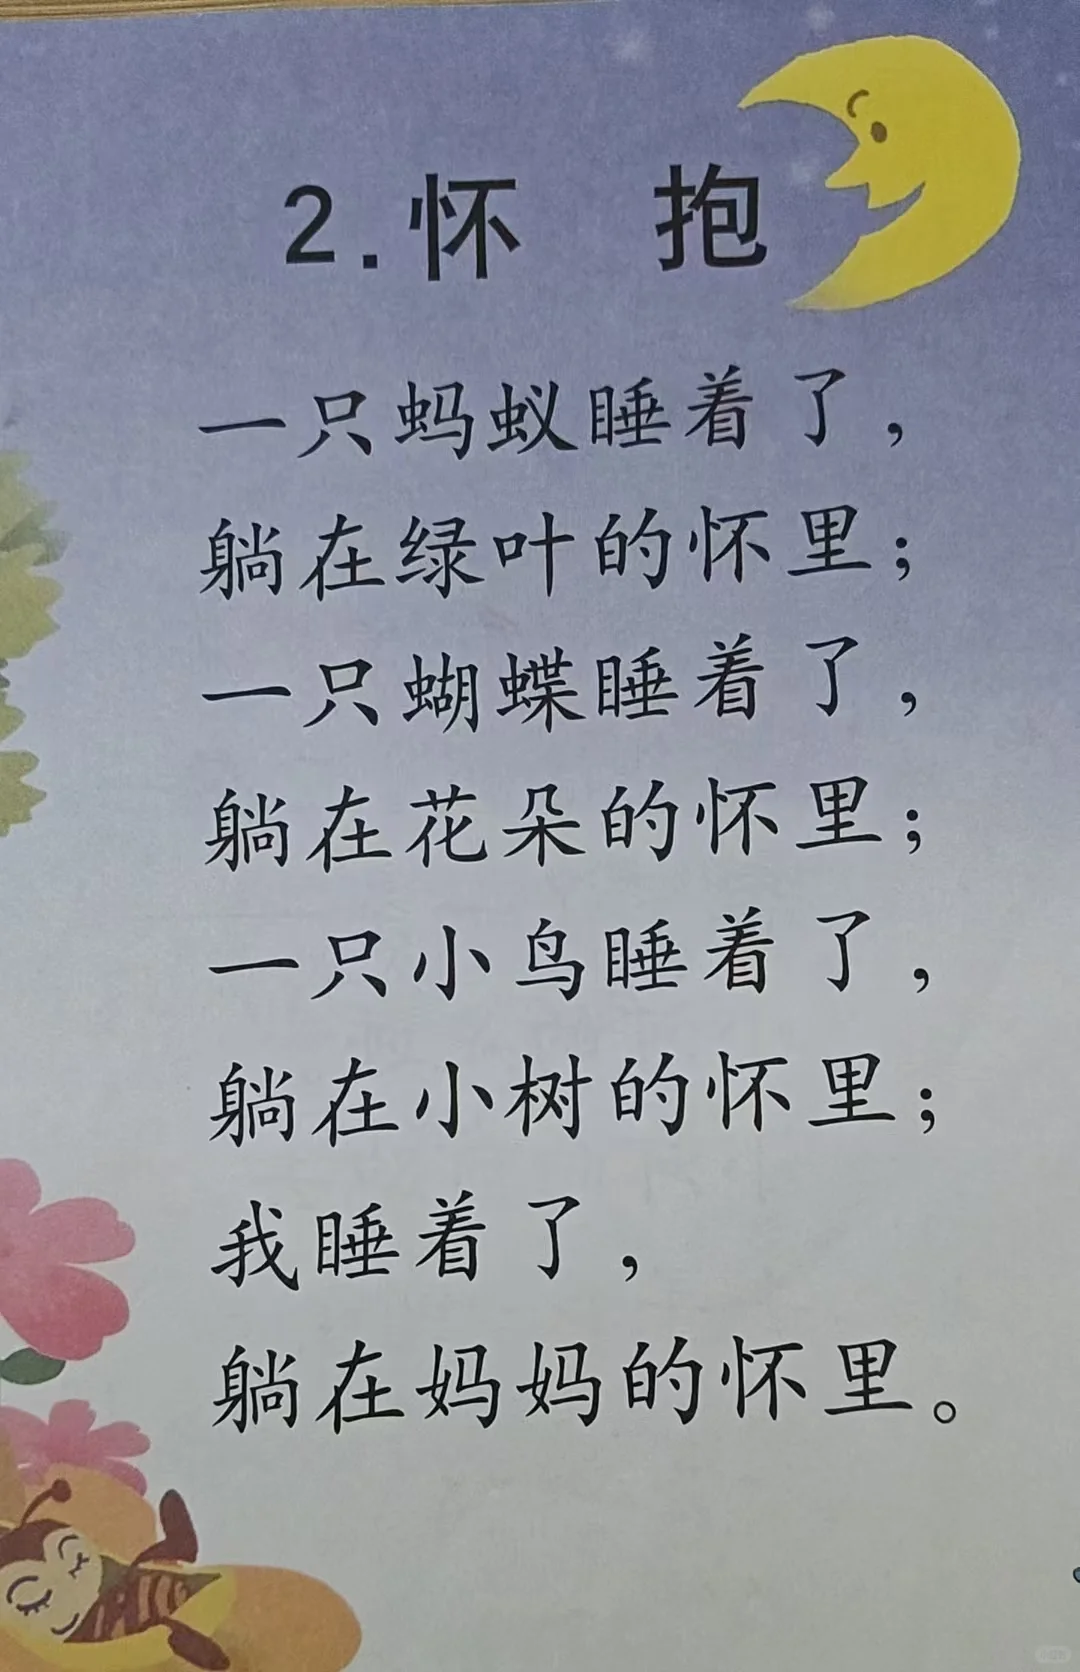 2.怀 抱
一只蚂蚁睡着了，
躺在绿叶的怀里；
一只蝴蝶睡着了，
躺在花朵的怀里；
一只小鸟睡着了，
躺在小树的怀里；
我睡着了，
躺在妈妈的怀里。